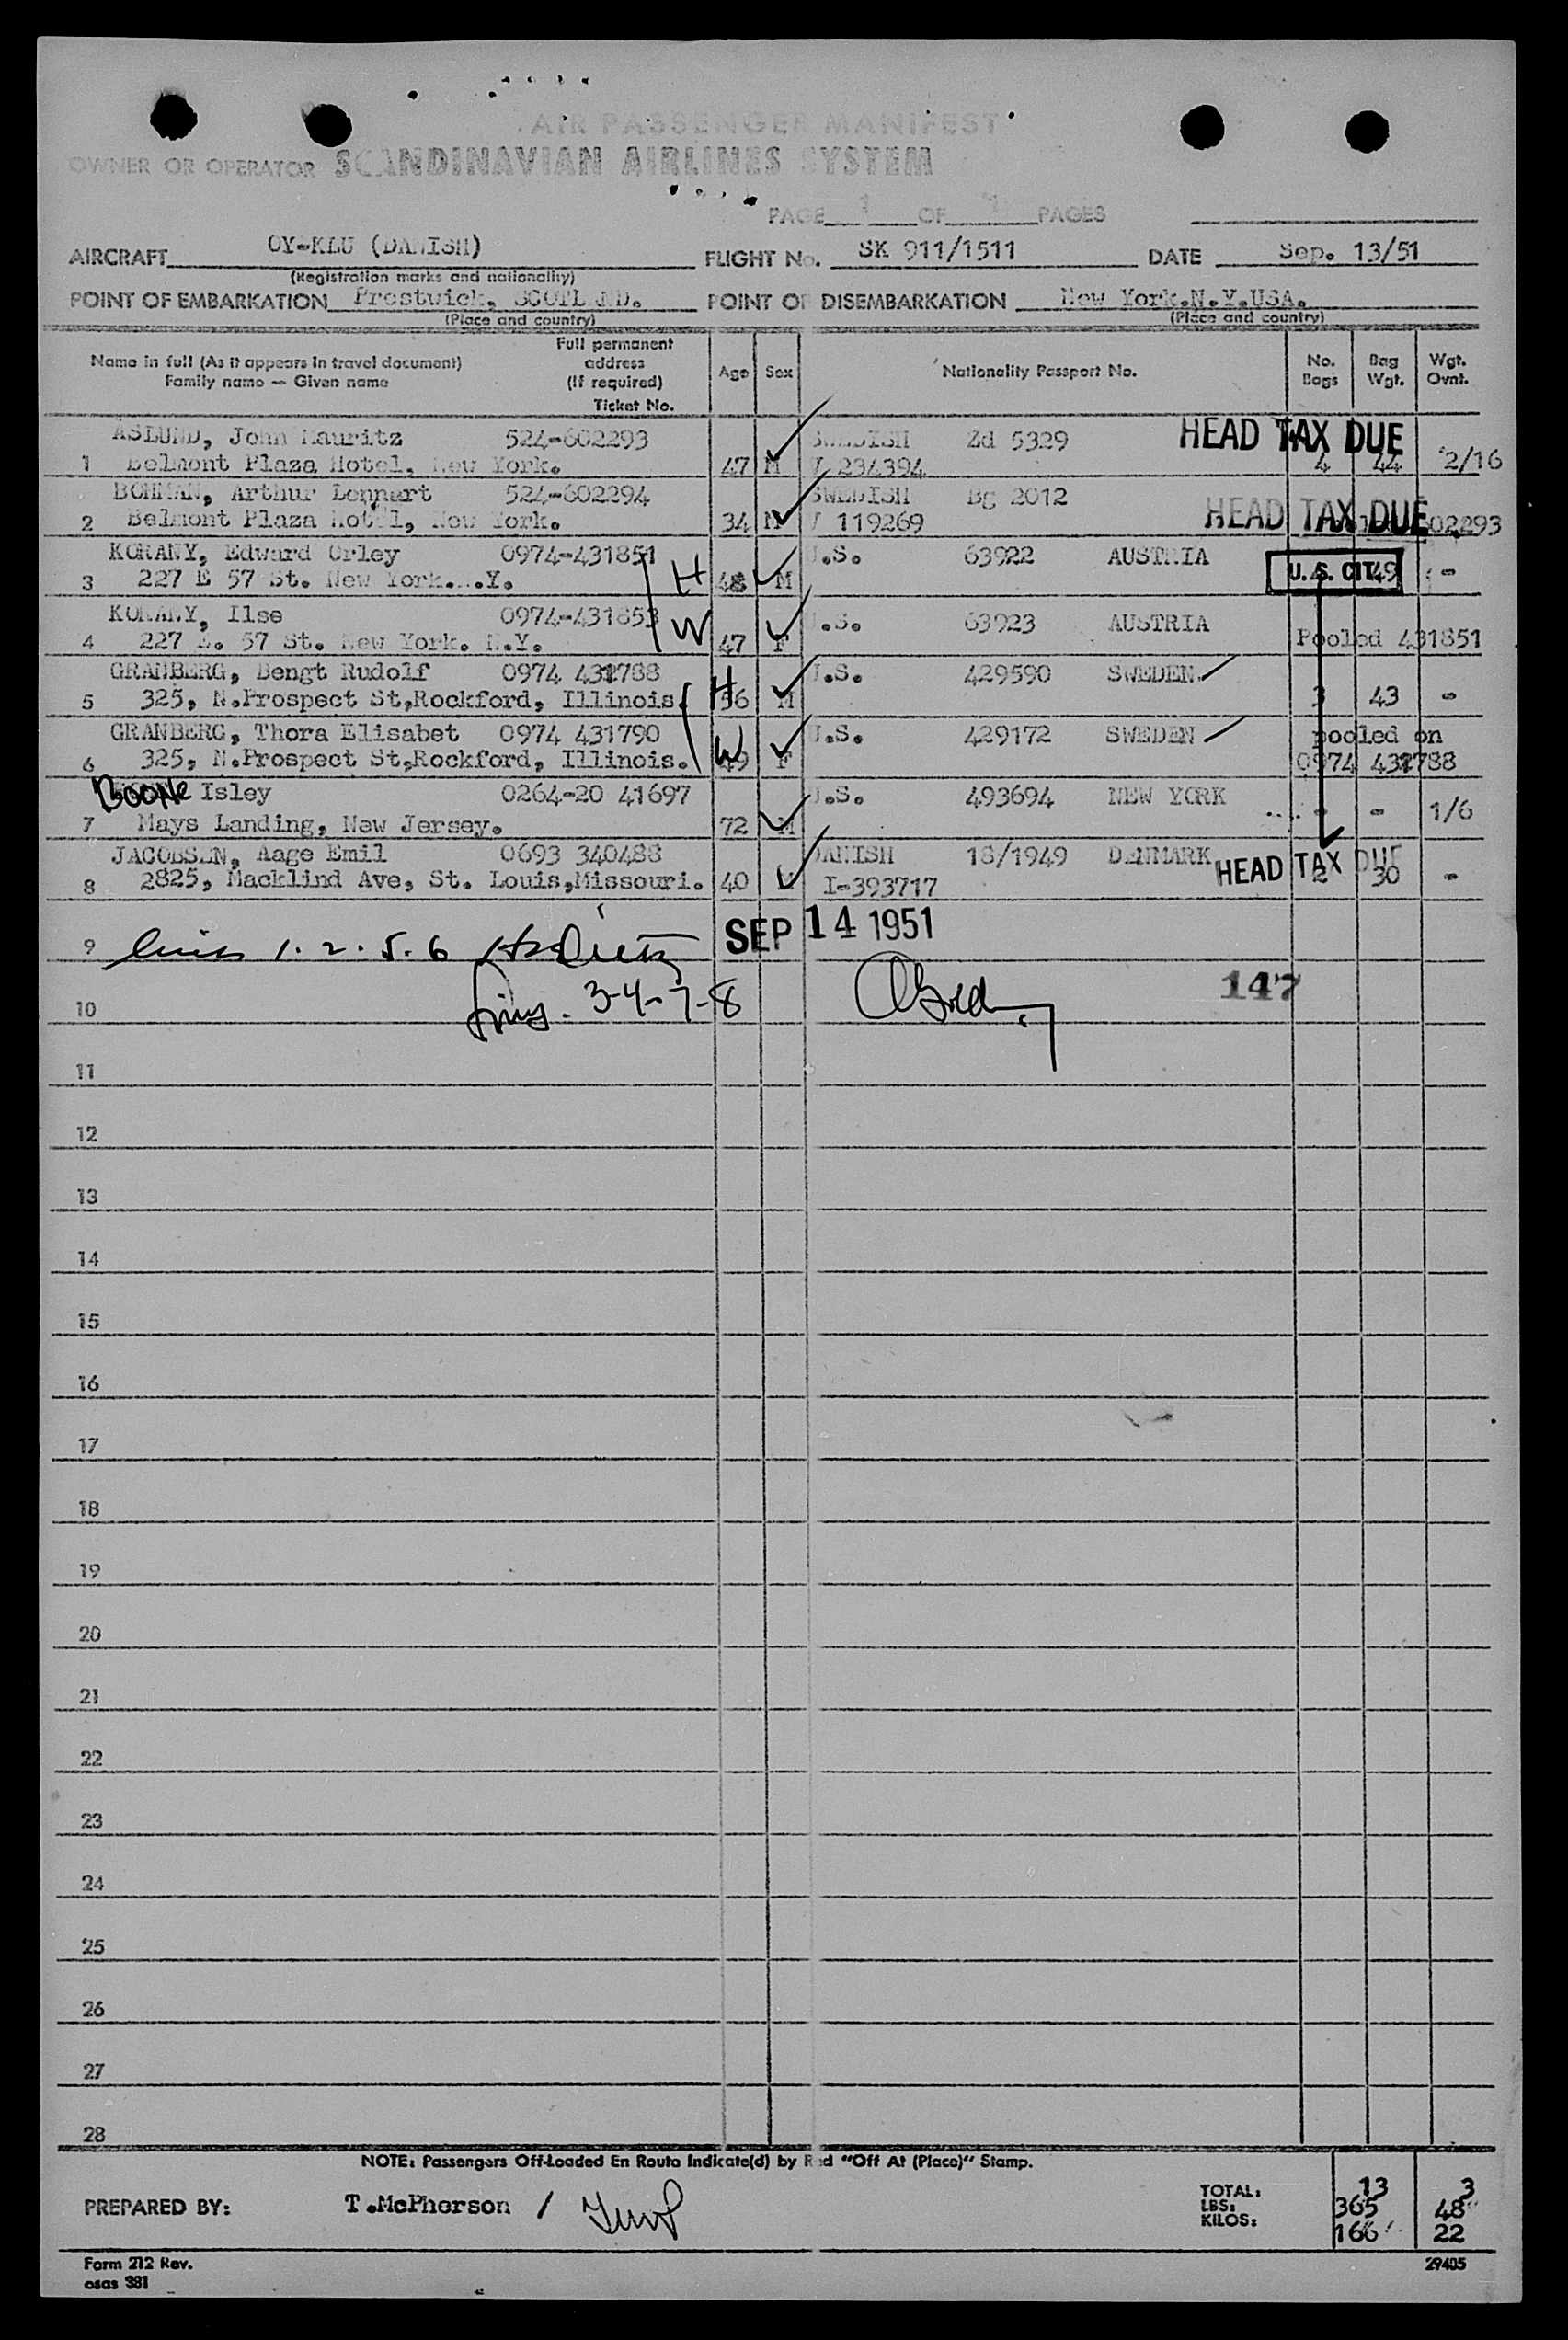 AIR PASSENGER MANIFEST
OWNER OR OPERATOR SCANDINAVIAN AIRLINES SYSTEM
PAGE 1 OF 1 PAGES
AIRCRAFT OY-KLU (DANISH) FLIGHT No. SK 911/1511 DATE Sep. 13/51
(Registration marks and nationality)
POINT OF EMBARKATION Prestwick, SCOTLAND. POINT OF DISEMBARKATION New York.N.Y.USA.
(Place and country) (Place and country)
Name in full (As it appears in travel document) Family name — Given name Full permanent address (If required) Ticket No. Age Sex Nationality Passport No. No. Bags Bag Wgt. Wgt. Ovnt.
ASLUND, John Mauritz 524-602293 SWEDISH Zd 5329 HEAD TAX DUE
1 Belmont Plaza Hotel, New York. 47 M V 234394 4 44 2/16
BOHMAN, Arthur Lennart 524-602294 SWEDISH Bg 2012 HEAD TAX DUE
2 Belmont Plaza Hotel, New York. 34 M V 119269 02293
KORANY, Edward Orley 0974-431851 U.S. 63922 AUSTRIA
3 227 E 57 St. New York.N.Y. H 48 M U. S. CIT. 49 -
KORANY, Ilse 0974-431853 U.S. 63923 AUSTRIA
4 227 E. 57 St. New York. N.Y. W 47 F Pooled 431851
GRANBERG, Bengt Rudolf 0974 431788 U.S. 429590 SWEDEN
5 325, N.Prospect St,Rockford, Illinois. H 56 M 3 43 -
GRANBERG, Thora Elisabet 0974 431790 U.S. 429172 SWEDEN pooled on
6 325, N.Prospect St,Rockford, Illinois. W 49 F 0974 431788
BOONE Isley 0264-20 41697 U.S. 493694 NEW YORK
7 Mays Landing, New Jersey. 72 M - - 1/6
JACOBSEN, Aage Emil 0693 340488 DANISH 18/1949 DENMARK HEAD TAX DUE
8 2825, Macklind Ave, St. Louis,Missouri. 40 M I-393717 2 30 -
9 lines 1. 2. 5. 6 SEP 14 1951
10 lines. 3-4-7-8 147
11
12
13
14
15
16
17
18
19
20
21
22
23
24
25
26
27
28
NOTE: Passengers Off-Loaded En Route Indicate(d) by Red "Off At (Place)" Stamp.
PREPARED BY: T.McPherson /
TOTAL: 13 3
LBS: 365 48
KILOS: 166 22
Form 212 Rev. 29405
osas 381